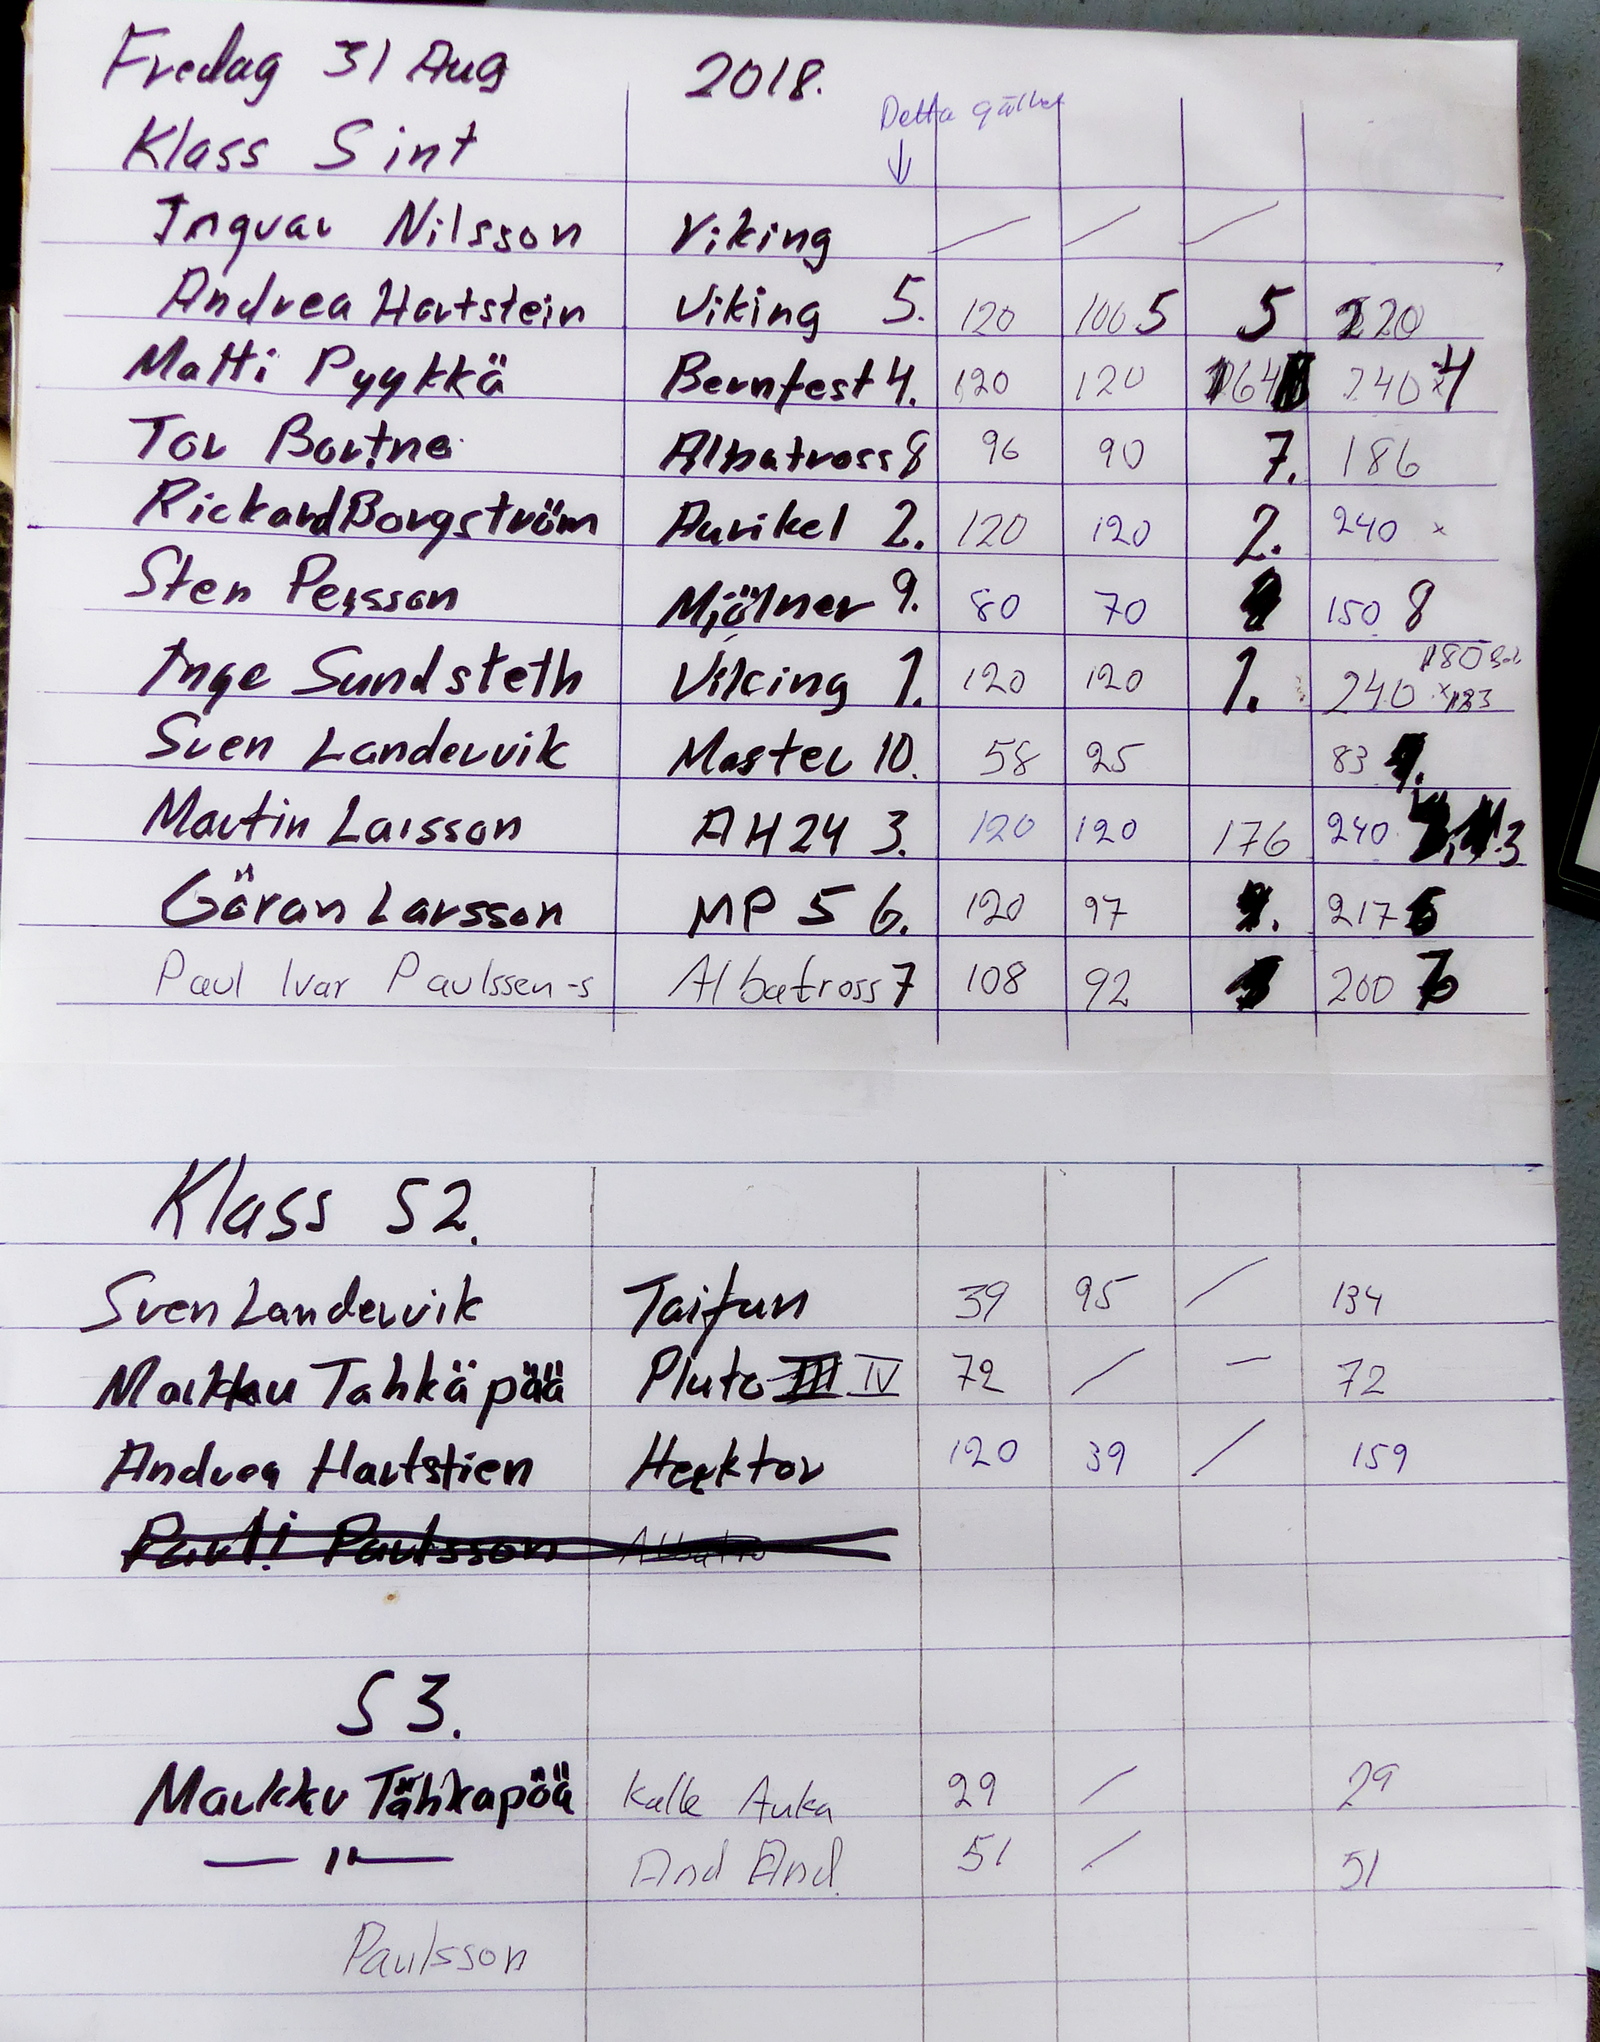 Fredag 31 Aug 2018.
Detta gäller
Klass S int ↓
Ingvar Nilsson Viking / / /
Andrea Hartstein Viking 5. 120 100 5 5 220
Matti Pyykkä Bernfest 4. 120 120 164 240 x 4
Tor Bortne Albatross 8 96 90 7. 186
Rickard Borgström Aurikel 2. 120 120 2. 240 x
Sten Persson Mjölner 9. 80 70 150 8
Inge Sundsteth Viking 1. 120 120 1. 240 x
Sven Landervik Master 10. 58 25 83
Martin Larsson AH24 3. 120 120 176 240 3
Göran Larsson MP 5 6. 120 97 217
Paul Ivar Paulssen-s Albatross 7 108 92 200
Klass S2.
Sven Landervik Taifun 39 95 / 134
Markku Tahkäpää Pluto IV 72 / — 72
Andrea Hartstien Hecktor 120 39 / 159
Pauli Paulsson Albatro
S 3.
Markku Tähkapää Kalle Anka 29 / 29
— 11 — And And. 51 / 51
Paulsson